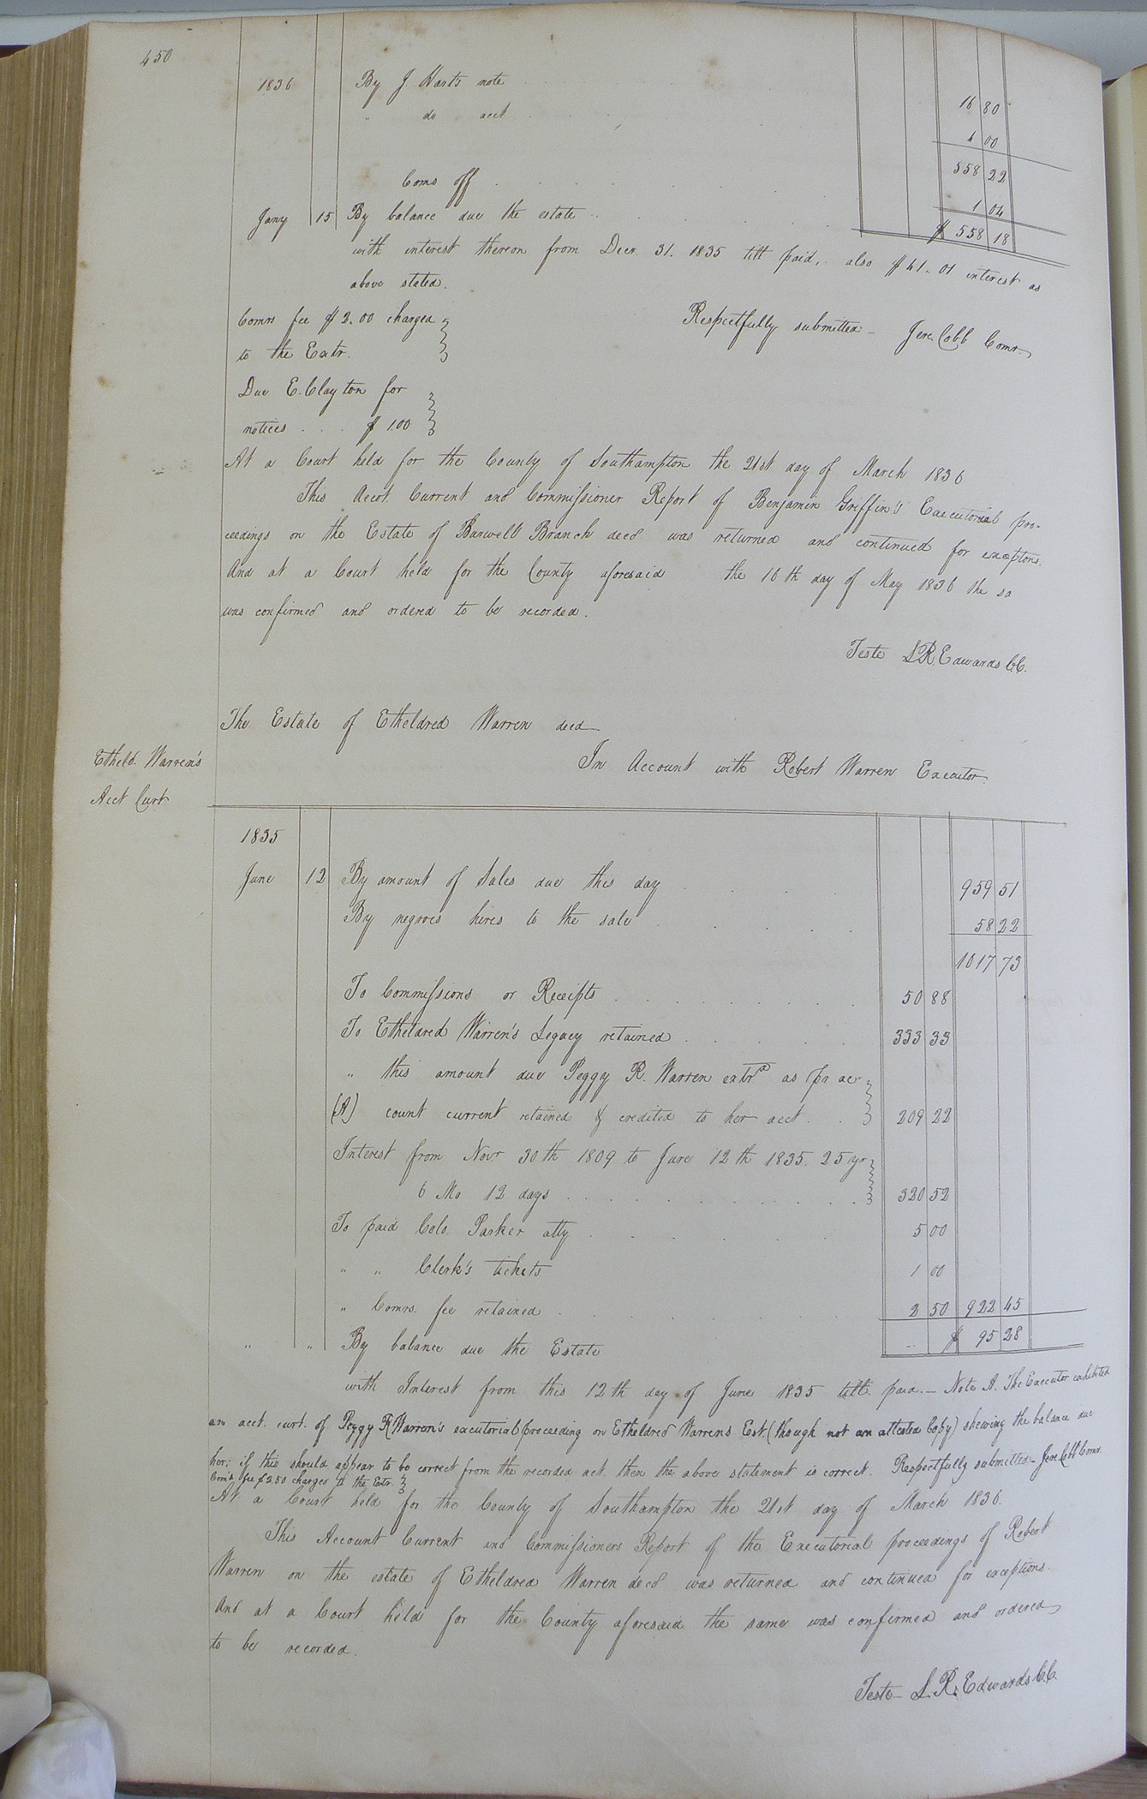 450
1836 By J. Harts note 16 80
" do acct 4 00
558 22
Coms off 1 04
Jany 15 By balance due the estate $ 558 18
with interest thereon from Decr. 31. 1835 till paid, also $41.01 interest as
above stated.
Respectfully submitted - Jere. Cobb Comr.
Comrs fee $2.00 charged
to the Extr.
Due E. Clayton for
notices . . . $1.00
At a Court held for the County of Southampton the 21st day of March 1836
This Acct. Current and Commissioner Report of Benjamin Griffin's Executorial pro-
ceedings on the Estate of Barwell Branch decd was returned and continued for exceptons.
And at a Court held for the County aforesaid the 16th day of May 1836 the sa
was confirmed and ordered to be recorded.
Teste L R Edwards C.C.
The Estate of Etheldred Warren decd
Etheld. Warren's
In Account with Robert Warren Executor
Acct Curt
1835
June 12 By amount of Sales due this day 959 51
By negroes hires to the sale 58 22
1017 73
To Commissions or Receipts 50 88
To Etheldred Warren's Legacy retained 333 33
" this amount due Peggy R. Warren extrx as pr ac-
(A) count current retained & credited to her acct. 209 22
Interest from Novr 30th 1809 to June 12th 1835. 25 yr
6 Mo 12 days 320 52
To paid Colo. Parker atty 5 00
" " Clerk's tickets 1 00
" Comrs. fee retained 2 50 922 45
" " By balance due the Estate $ 95 28
with Interest from this 12th day of June 1835 till paid. - Note A. The Executor exhibited
an acct. curt. of Peggy R Warren's executorial proceeding on Etheldred Warrens Est. (though not an attested Copy) shewing the balance due
her; if this should appear to be correct from the recorded act. then the above statement is correct. Respectfully submitted - Jere Cobb Comr.
Comrs fee $2.50 charged to the Extr.
At a Court held for the County of Southampton the 21st day of March 1836.
This Account Current and Commissioners Report of the Executorial proceedings of Robert
Warren on the estate of Etheldred Warren decd was returned and continued for exceptions.
And at a Court held for the County aforesaid the same was confirmed and ordered
to be recorded.
Teste L. R. Edwards C.C.